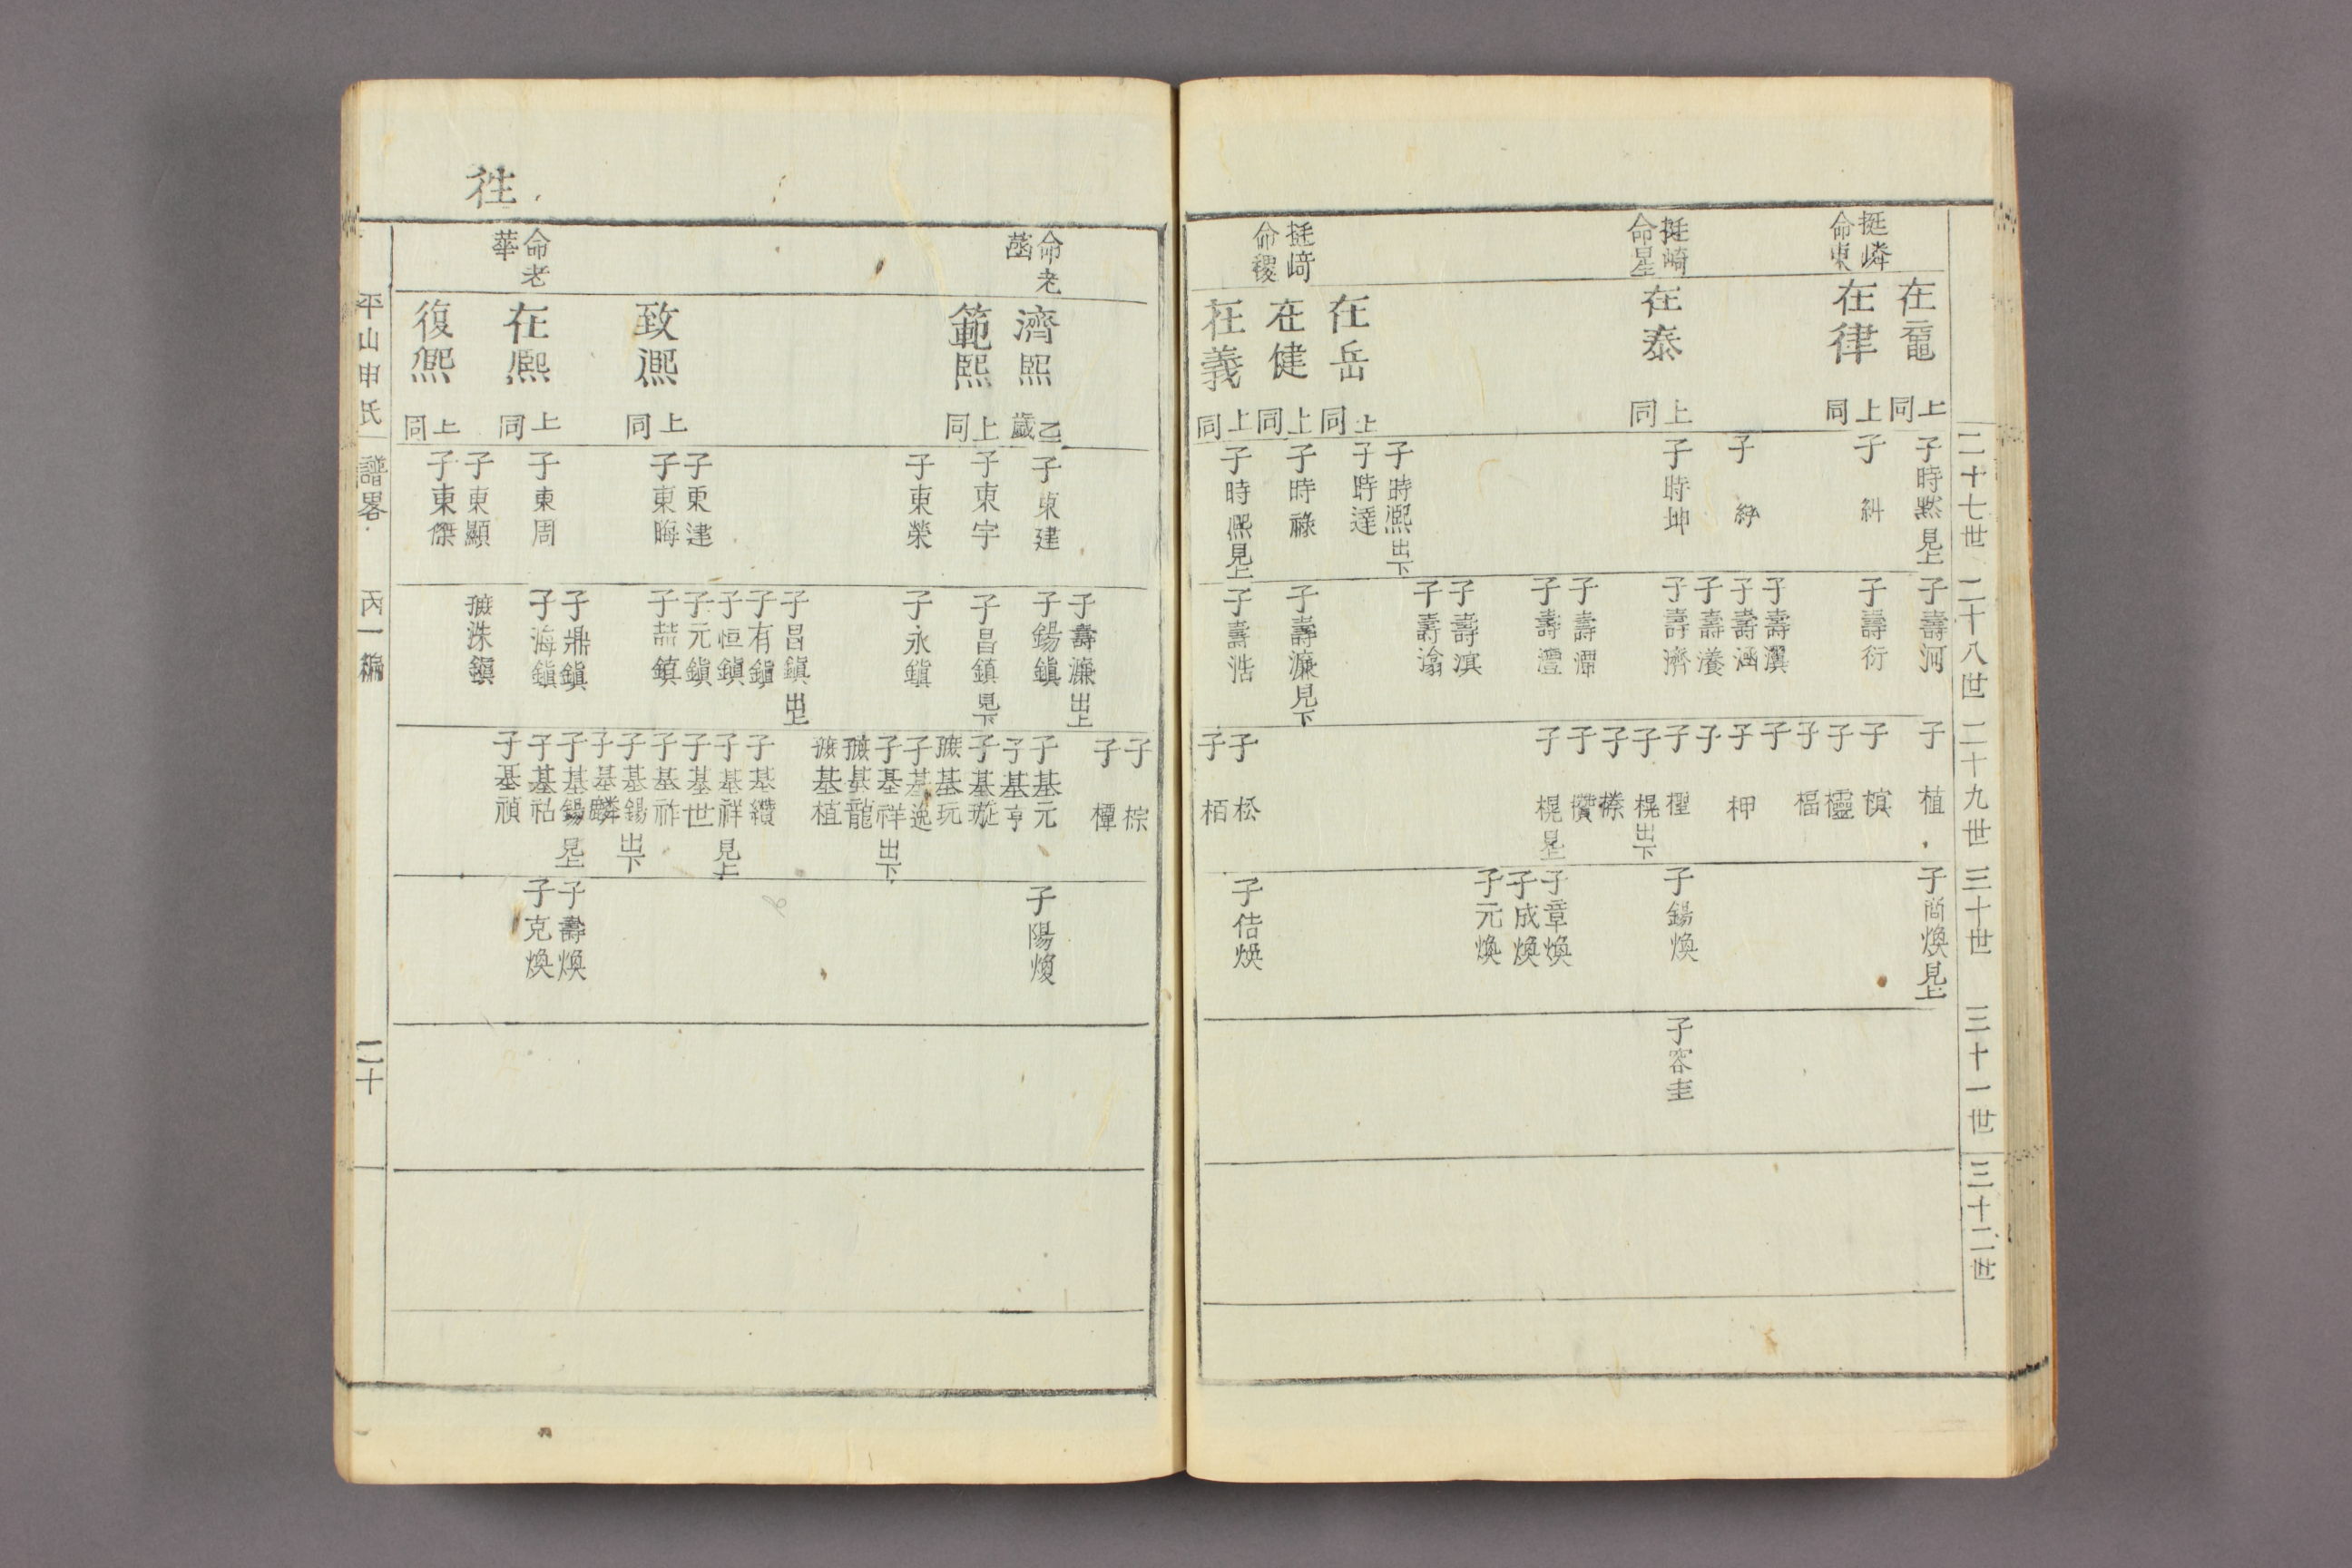 二十七世
二十八世
二十九世
三十世
三十一世
三十二世
挺嶙
命東
挺崎
命星
挺崎
命稷
在竈
上同
在律
上同
在泰
上同
在岳
上同
在健
上同
在義
上同
子時黙 見上
子 糾
子
子時坤
子時凞 出下
子時達
子時祿
子時凞 見上
子壽河
子壽衍
子壽瀷
子壽涵
子壽瀁
子壽濟
子壽潭
子壽灃
子壽滇
子壽渝
子壽濂 見下
子壽浩
子 植
子 槙
子 櫺
子 楅
子
子 柙
子
子 檉
子 榥 出下
子
子 欑
子 榥 見上
子 松
子 栢
子尙煥 見上
子錫煥
子章煥
子成煥
子元煥
子佶煥
子容圭
命老
菡
命老
華
濟熙
乙歲
範熙
上同
致凞
上同
在凞
上同
復凞
上同
子東建
子東宇
子東榮
子東建
子東晦
子東周
子東顯
子東傑
子壽濂 出上
子錫鎭
子昌鎭 見下
子永鎭
子昌鎭 出上
子有鎭
子恒鎭
子元鎭
子喆鎭
子鼎鎭
子海鎭
洙鎭
子 棕
子 橝
子基元
子基亨
子基璇
基玩
子基逸
子基祥 出下
基龍
基植
子基纘
子基祥 見上
子基世
子基祚
子基錫 出下
子基麟
子基錫 見上
子基祜
子基禎
子陽煥
子壽煥
子克煥
往
平山申氏
譜畧
丙一編
二十